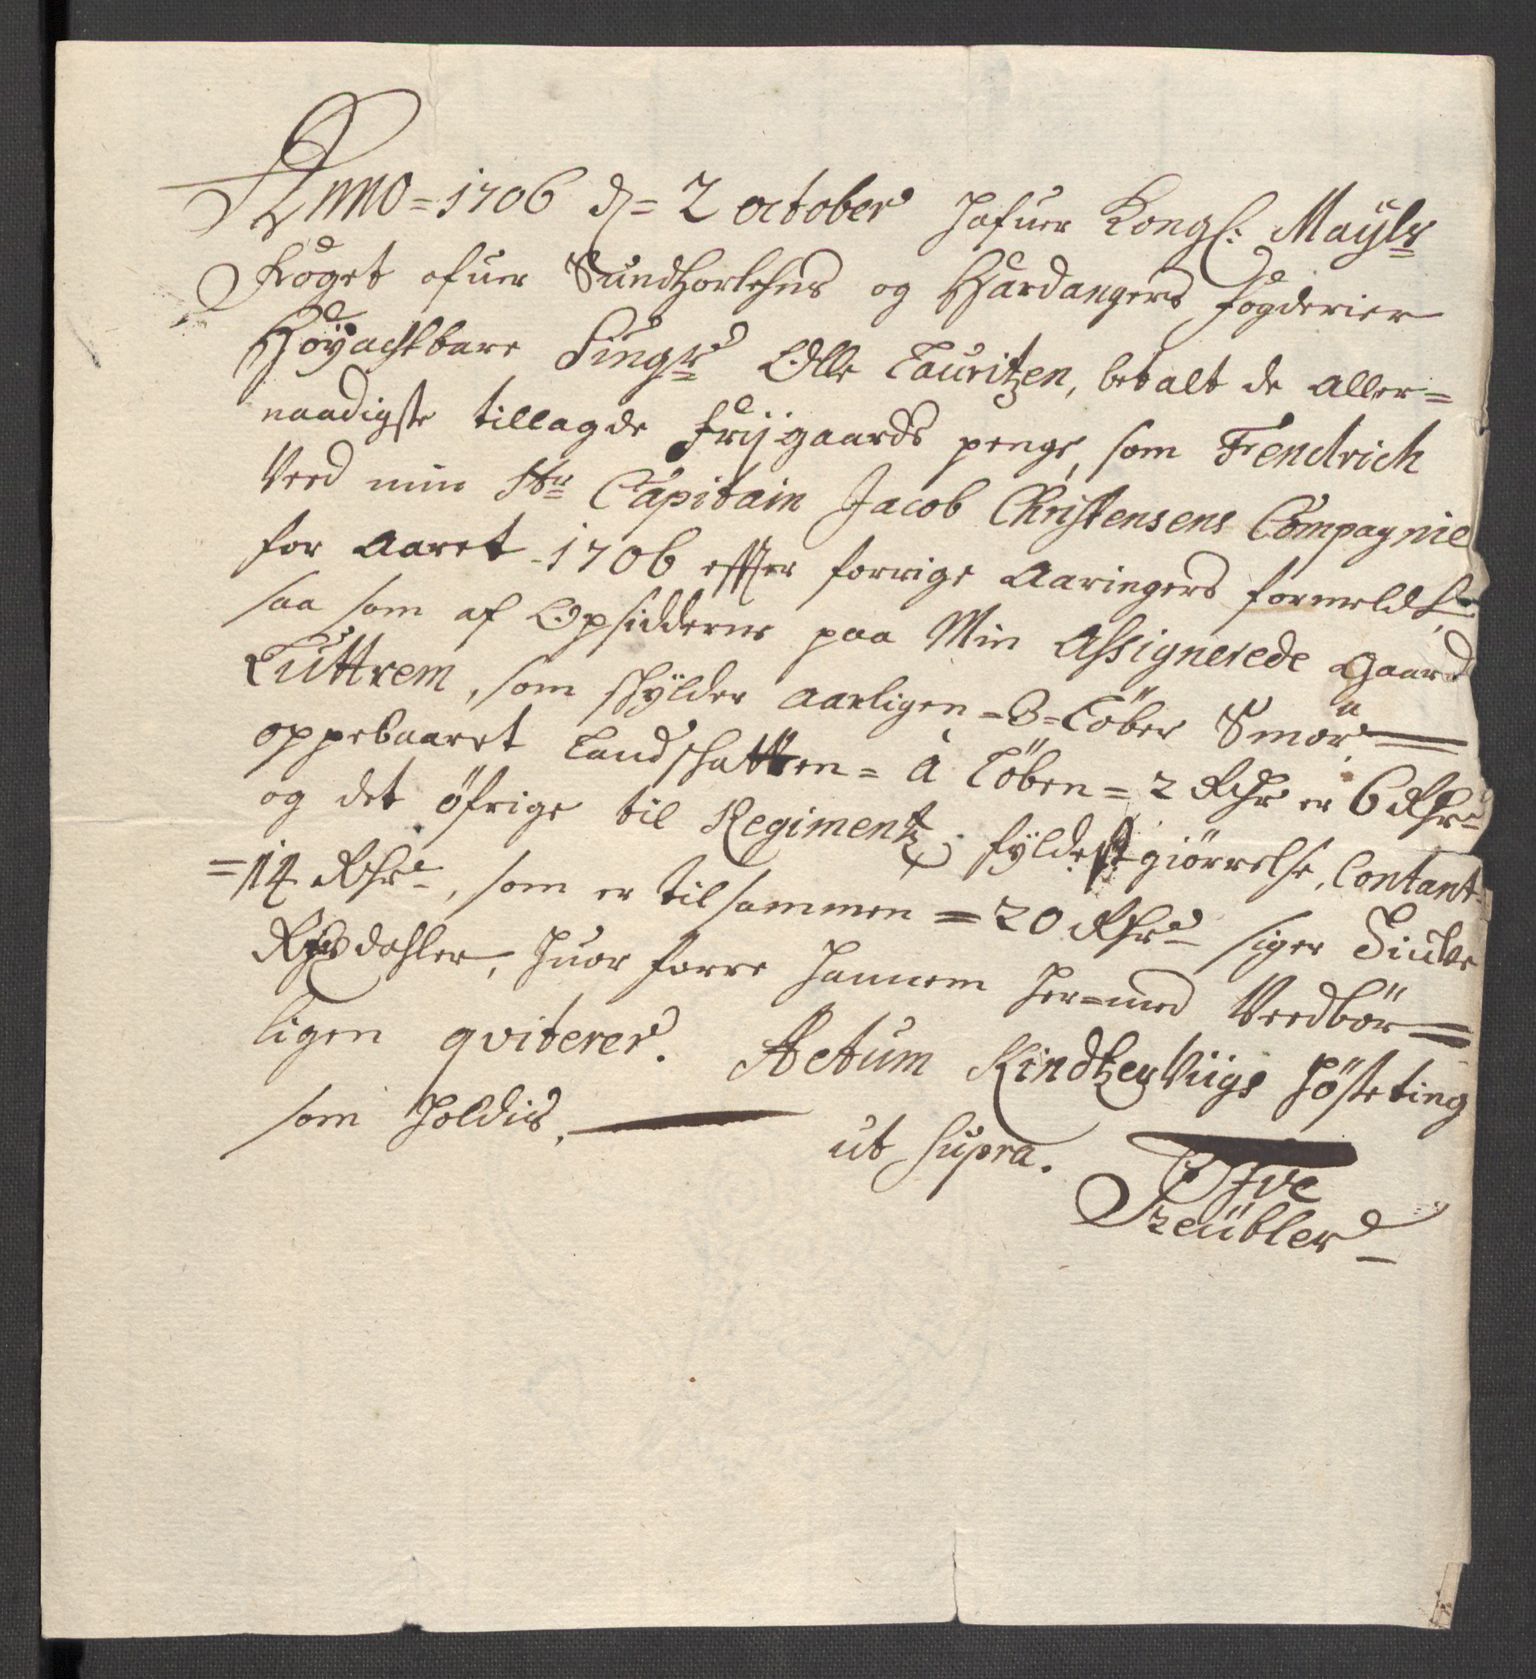 Anno = 1706 d = 2 october Hafuer Kongl: Mayts
Foget ofuer Sundhorlehns og Hardangers fogderier
Höyachtbare Singr Olle Lauritzen, betalt de aller=
naadigste tillagde frijgaards penge, som Fendrich
Veed min Hr Capitain Jacob Christensens Compagnie
for Aaret 1706 effter forrige Aaringers formeld
saa som af Opsidderne paa Min Assignerede gaard
Luttrem, som schylder aarligen = 3 = Löber Smör
oppebaaret Landschatten = à Löben = 2 Rdr er 6 Rdr
og det öfrige til Regimentz fyldestgiörrelse, Contant
= 14 Rdr, som er tilsammen = 20 Rdr siger Tiufve
Rixdahler, huor forre hannem her=med Veedbör=
ligen qviterer. Actum Kindtzeruiigs Hösteting
som holdis,
ut supra.
Treübler